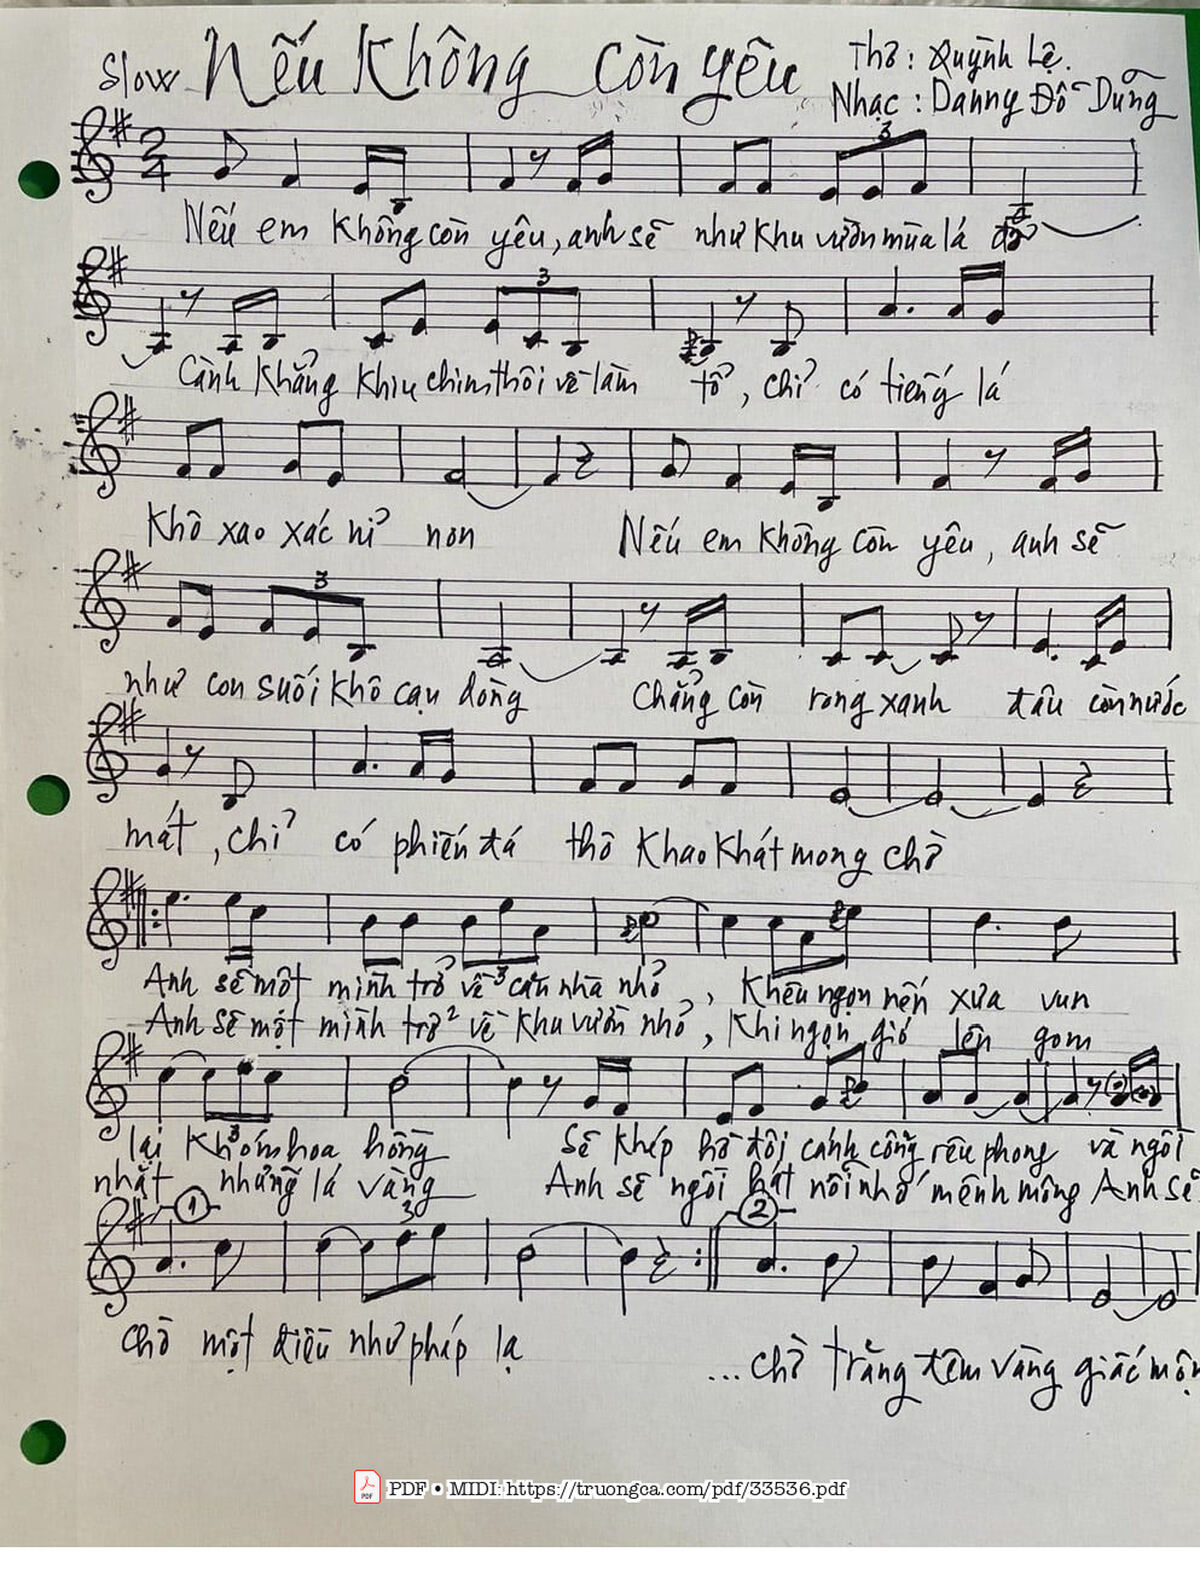 Slow Nếu Không Còn Yêu
Thơ: Quỳnh Lệ.
Nhạc: Danny Đỗ Dũng
2
4
3
Nếu em không còn yêu, anh sẽ như khu vườn mùa lá đổ
3
Cành khẳng khiu chim thôi về làm tổ, chỉ có tiếng lá
khô xao xác nỉ non Nếu em không còn yêu, anh sẽ
3
như con suối khô cạn dòng Chẳng còn rong xanh đâu còn nước
mát, chỉ có phiến đá thô khao khát mong chờ
3
Anh sẽ một mình trở về căn nhà nhỏ, khêu ngọn nến xưa vun
Anh sẽ một mình trở về khu vườn nhỏ, khi ngọn gió lên gom
3
lại khóm hoa hồng Sẽ khép hờ đôi cánh cổng rêu phong và ngồi
nhặt những lá vàng Anh sẽ ngồi hát nỗi nhớ mênh mông Anh sẽ
1 3 2
chờ một điều như phép lạ
...chờ trăng đêm vàng giấc
PDF • MIDI: https://truongca.com/pdf/33536.pdf